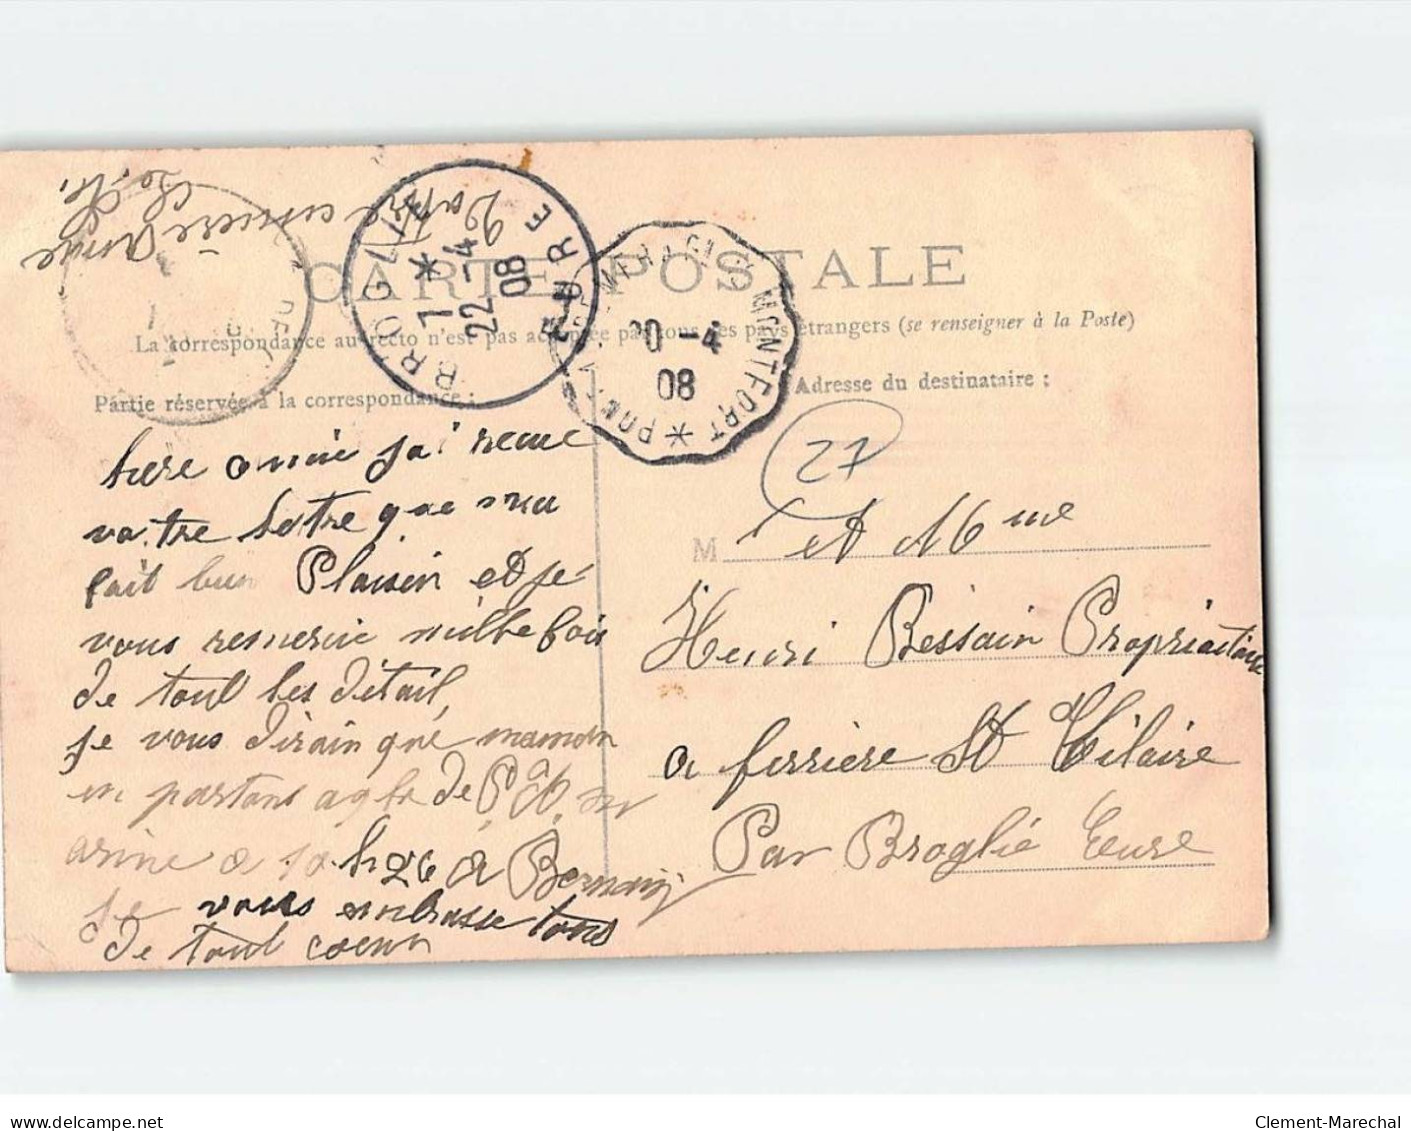 Votre amie Anne
CARTE POSTALE
La correspondance au recto n'est pas acceptée par tous les pays étrangers (se renseigner à la Poste)
Partie réservée à la correspondance :
Adresse du destinataire :
BROGLIE
7 *
22 -4
08
EURE
MONTFORT * PONT
20 -4
08
27
amie jai recue
vo.tre lettre que ma
fait bien Plaisir et je
vous remercie mille fois
de tout les détail,
je vous dirain que maman
en partans a
a à Bernay
je vous embrasse tous
de tout coeur
M et Mme
Henri Bessain Propriétaire
a ferriere St Hilaire
Par Broglie Eure
Clement-Marechal